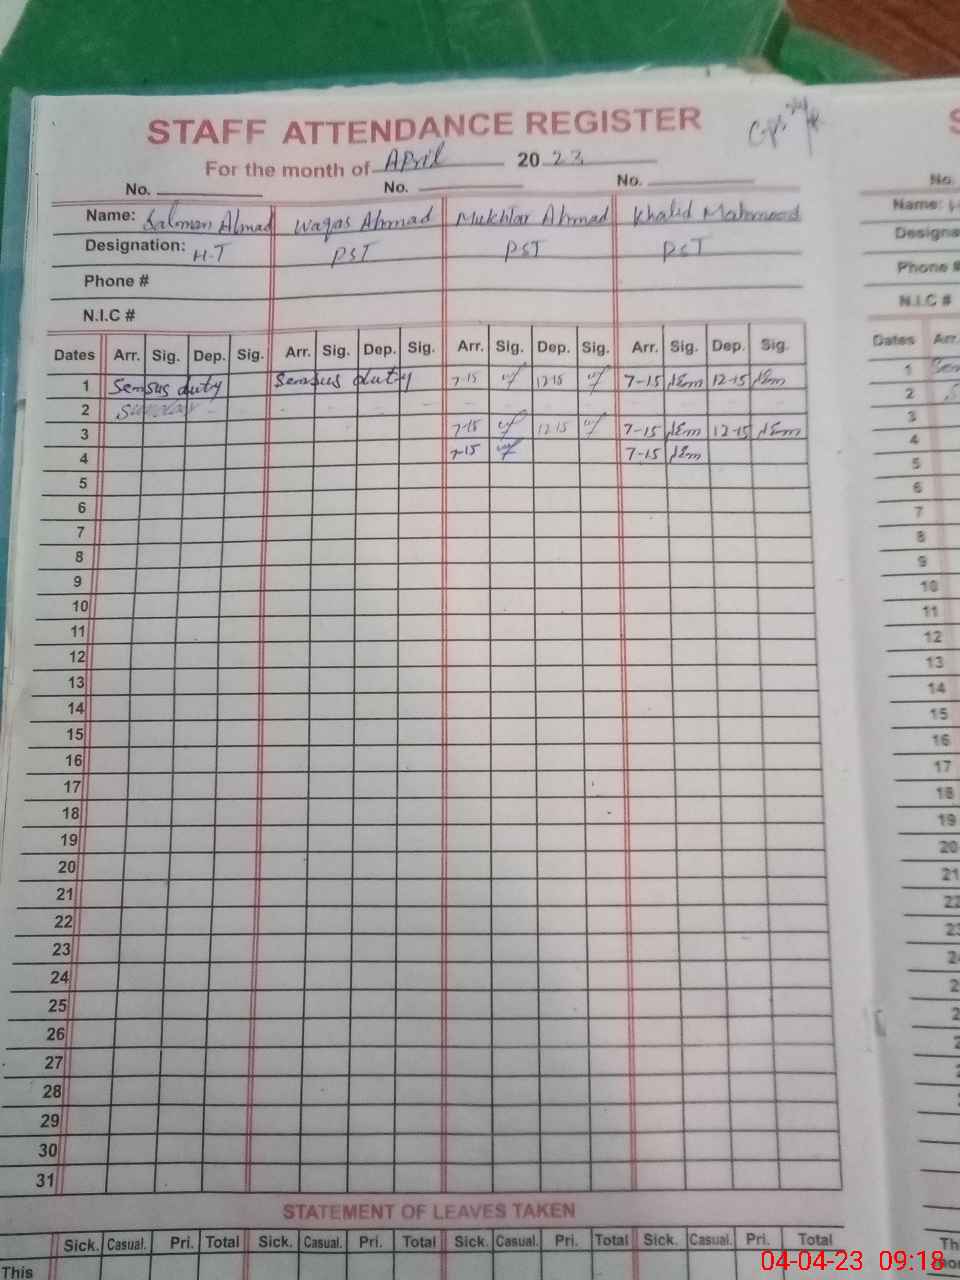 STAFF ATTENDANCE REGISTER
For the month of April 2023
No. No. No. No.
Name: Salman Ahmad Waqas Ahmad Mukhtar Ahmad Khalid Mahmood Name:
Designation: H.T PST PST PST Designa
Phone # Phone #
N.I.C # N.I.C #
Dates Arr. Sig. Dep. Sig. Arr. Sig. Dep. Sig. Arr. Sig. Dep. Sig. Arr. Sig. Dep. Sig. Dates Arr.
1 Sensus duty Sensus duty 7-15 12-15 7-15 12-15 1
2 Sunday 2
3 7-15 12-15 7-15 12-15 3
4 7-15 7-15 4
5 5
6 6
7 7
8 8
9 9
10 10
11 11
12 12
13 13
14 14
15 15
16 16
17 17
18 18
19 19
20 20
21 21
22 22
23
24
25
26
27
28
29
30
31
STATEMENT OF LEAVES TAKEN
Sick. Casual. Pri. Total Sick. Casual. Pri. Total Sick. Casual. Pri. Total Sick. Casual. Pri. Total
This
04-04-23 09:18